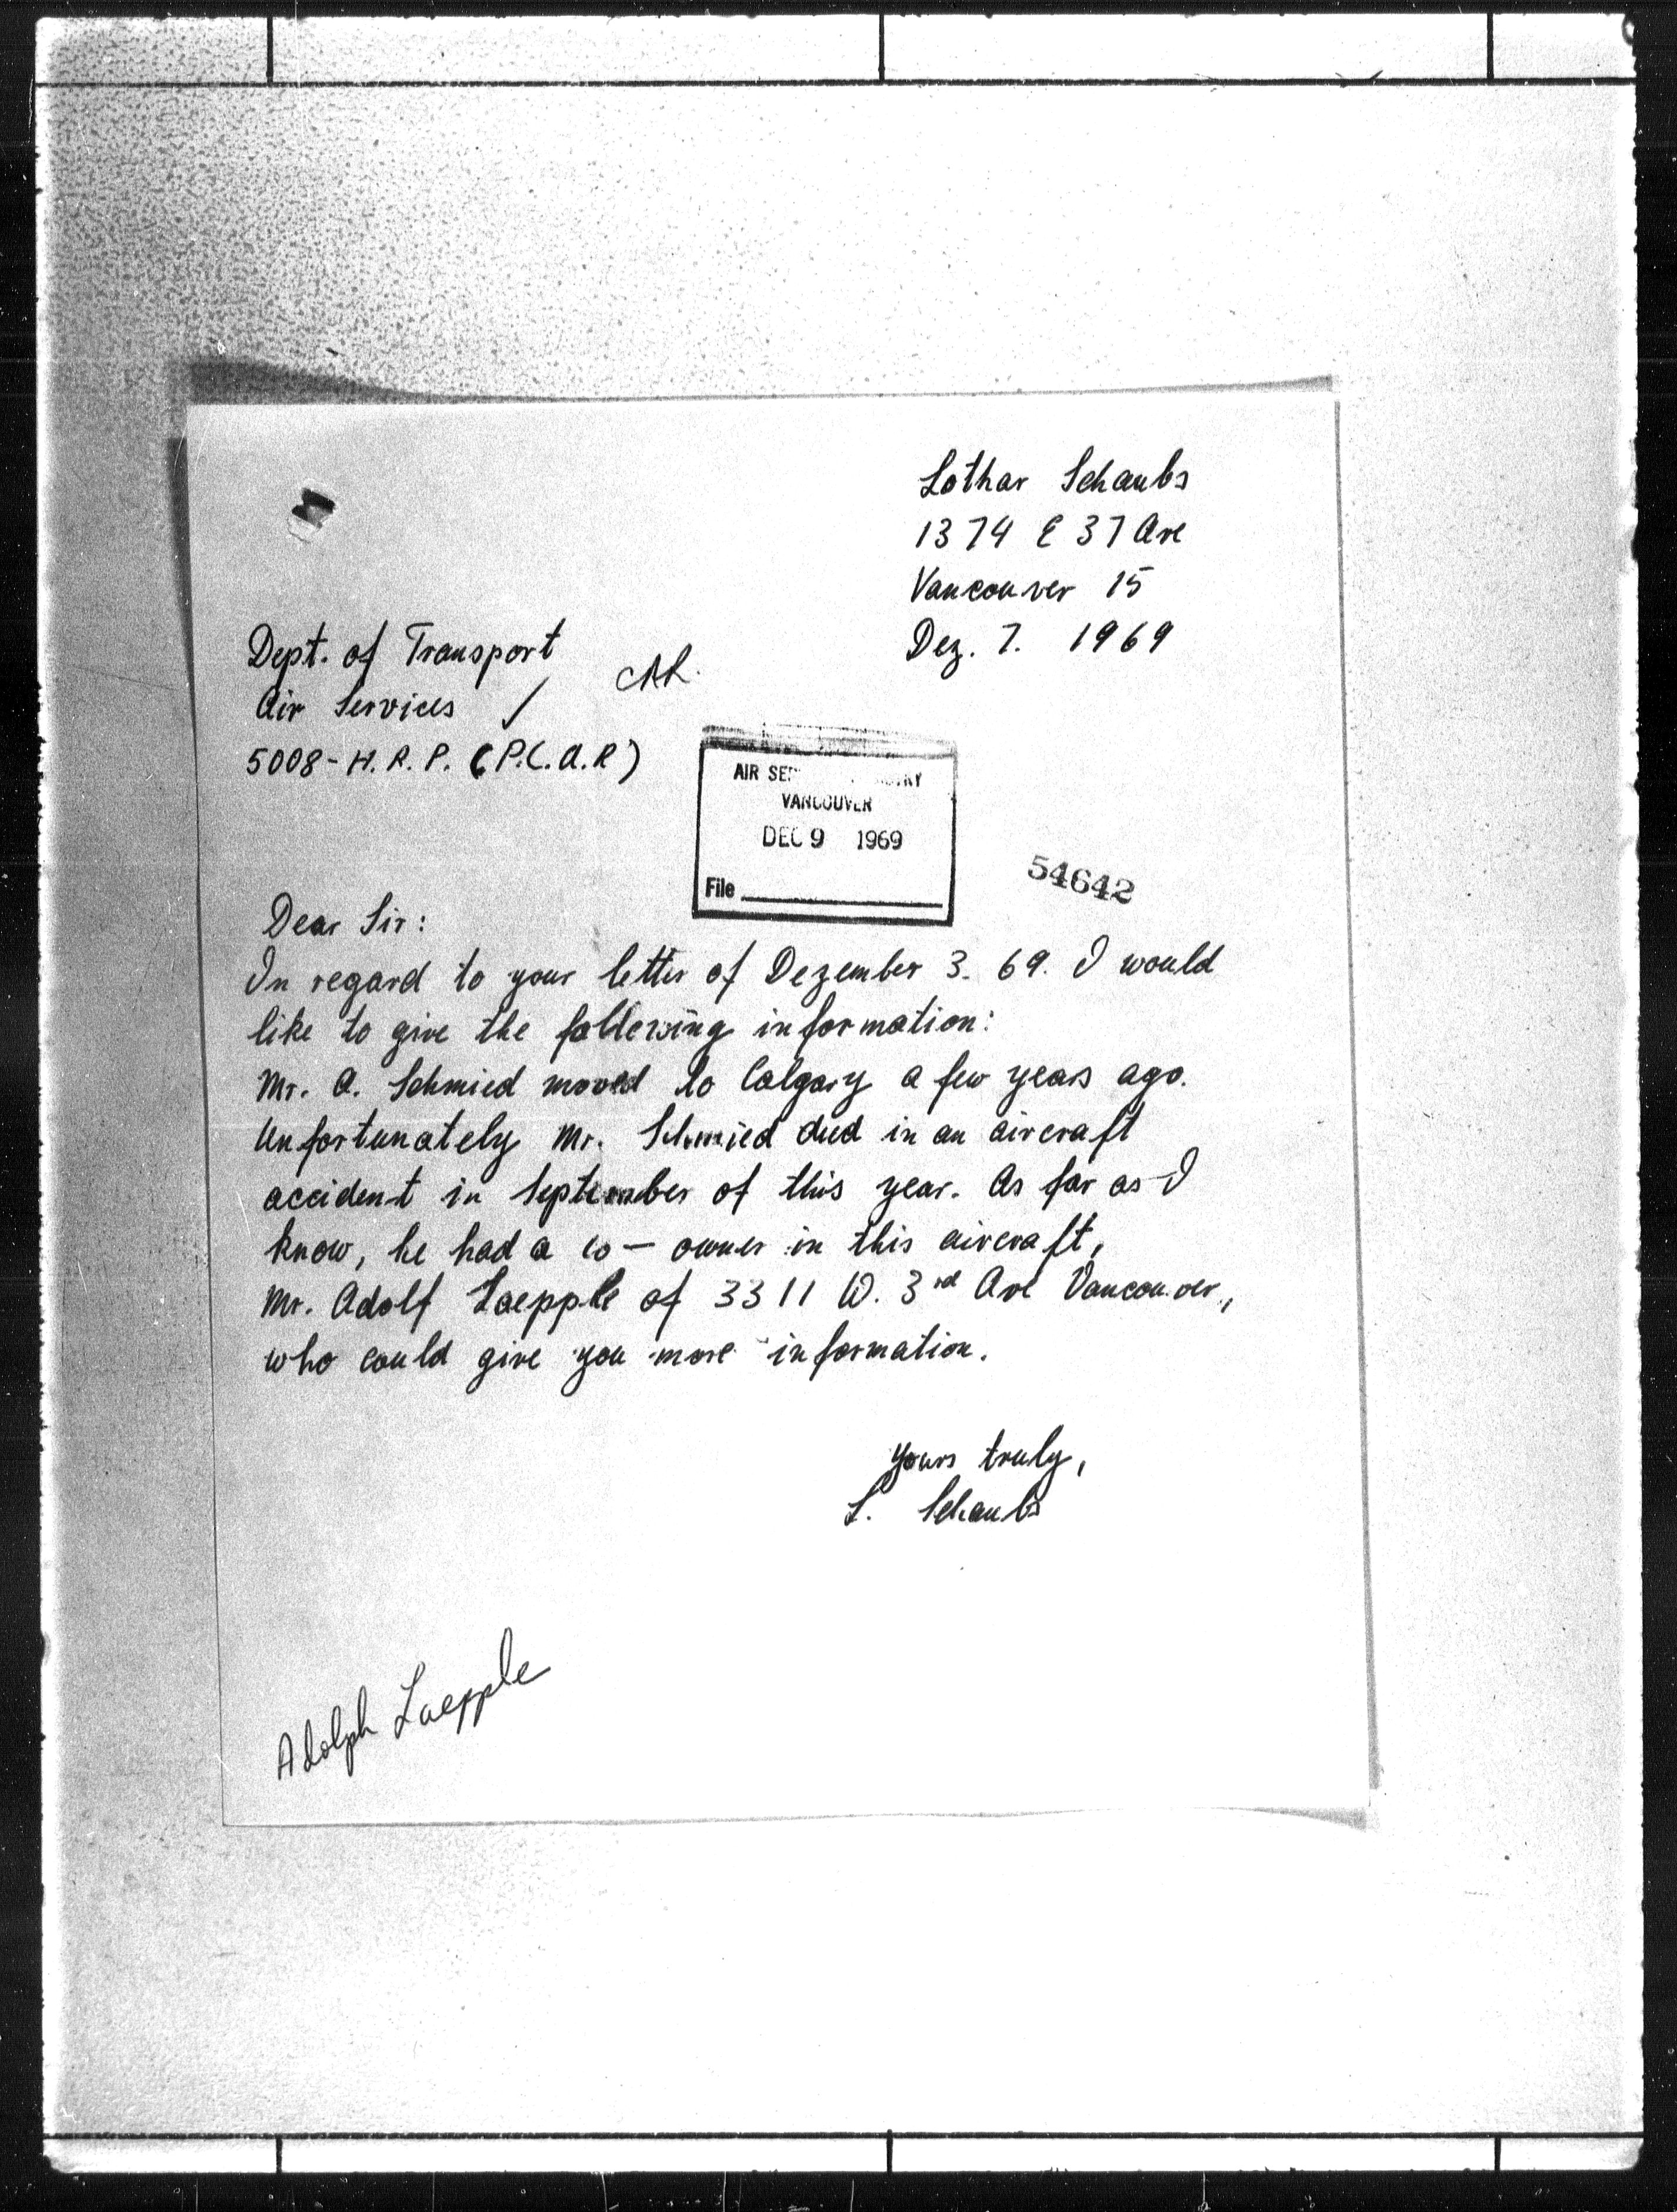 Lothar Schaubs
1374 E 37 Ave
Vancouver 15
Dez. 7. 1969
Dept. of Transport
Air Services
5008-H.R.P. (P.C.A.R)
AIR
VANCOUVER
DEC 9 1969
File
54642
Dear Sir:
In regard to your letter of Dezember 3. 69. I would
like to give the following information:
Mr. A. Schmied moved to Calgary a few years ago.
Unfortunately Mr. Schmied died in an aircraft
accident in September of this year. As far as I
know, he had a co-owner in this aircraft,
Mr. Adolf Laepple of 3311 W. 3rd Ave Vancouver,
who could give you more information.
Yours truly,
L. Schaubs
Adolph Laepple